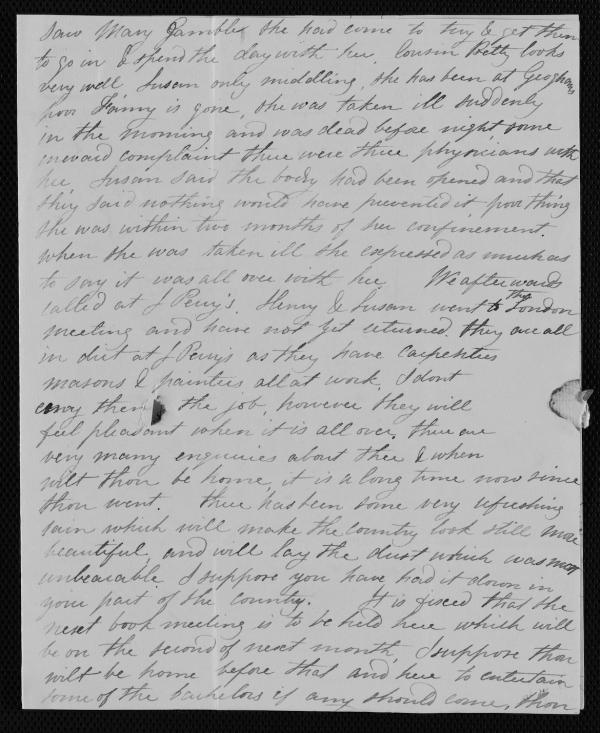 saw Mary Gamble she had come to try & get them
to go in & spend the day with her, Cousin Betty looks
very well, Susan only middling, she has been at Geoghans
poor Fanny is gone, she was taken ill suddenly
in the morning and was dead before night some
inward complaint there were three physicians with
her, Susan said the body had been opened and that
they said nothing would have prevented it poor thing
she was within two months of her confinement.
when she was taken ill she expressed as much as
to say it was all over with her. We afterwards
called at J Perry's. Henry & Susan went to the London
meeting and have not yet returned. they are all
in dirt at J Perry's as they have carpenters
masons & painters all at work, I dont
envy them the job, however they will
feel pleasant when it is all over. there are
very many enquiries about thee & when
wilt thou be home, it is a long time now since
thou went. there has been some very refreshing
rain which will make the country look still more
beautiful, and will lay the dust which was most
unbearable. I suppose you have had it down in
your part of the country. It is fixed that the
next book meeting is to be held here which will
be on the second of next month, I suppose thou
wilt be home before that and here to entertain
some of the bachelors if any should come, thou